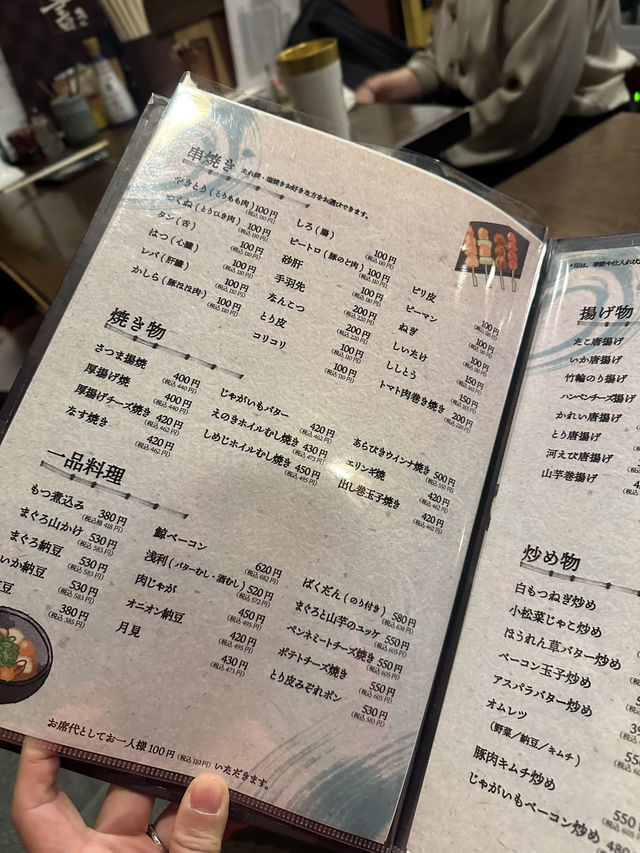 串焼き タレ焼・塩焼きお好きな方をお選びできます。
やきとり(とりもも肉) 100円 (税込110円)
つくね(とりひき肉) 100円 (税込110円)
タン(舌) 100円 (税込110円)
はつ(心臓) 100円 (税込110円)
レバ(肝臓) 100円 (税込110円)
かしら(豚ほほ肉) 100円 (税込110円)
しろ(腸) 100円 (税込110円)
ピートロ(豚のど肉) 100円 (税込110円)
砂肝 100円 (税込110円)
手羽先 200円 (税込220円)
なんこつ 200円 (税込220円)
とり皮 100円 (税込110円)
コリコリ 100円 (税込110円)
ピリ皮 100円 (税込110円)
ピーマン 100円 (税込110円)
ねぎ 100円 (税込110円)
しいたけ 150円 (税込165円)
ししとう 150円 (税込165円)
トマト肉巻き焼き 200円 (税込220円)
焼き物
さつま揚焼 400円 (税込440円)
厚揚げ焼 400円 (税込440円)
厚揚げチーズ焼き 420円 (税込462円)
なす焼き 420円 (税込462円)
じゃがいもバター 420円 (税込462円)
えのきホイルむし焼き 430円 (税込473円)
しめじホイルむし焼き 450円 (税込495円)
あらびきウインナ焼き 500円 (税込550円)
エリンギ焼 420円 (税込462円)
出し巻玉子焼き 420円 (税込462円)
一品料理
もつ煮込み 380円 (税込格418円)
まぐろ山かけ 530円 (税込583円)
まぐろ納豆 530円 (税込583円)
いか納豆 530円 (税込583円)
豆 380円 (税込385円)
鯨ベーコン 620円 (税込682円)
浅利(バターむし・酒むし) 520円 (税込572円)
肉じゃが 450円 (税込495円)
オニオン納豆 420円 (税込495円)
月見 430円 (税込473円)
ばくだん(のり付き) 580円 (税込638円)
まぐろと山芋のユッケ 550円 (税込605円)
ペンネミートチーズ焼き 550円 (税込605円)
ポテトチーズ焼き 550円 (税込605円)
とり皮みぞれポン 530円 (税込583円)
お席代としてお一人様100円(税込110円)いただきます。
*印は、季節や仕入れ状
揚げ物
たこ唐揚げ
いか唐揚げ
竹輪のり揚げ
ハンペンチーズ揚げ
かれい唐揚げ
とり唐揚げ
河えび唐揚げ
山芋巻揚げ
炒め物
白もつねぎ炒め
小松菜じゃこ炒め
ほうれん草バター炒め
ベーコン玉子炒め
アスパラバター炒め
オムレツ
(野菜/納豆/キムチ)
豚肉キムチ炒め 550
じゃがいもベーコン炒め 480